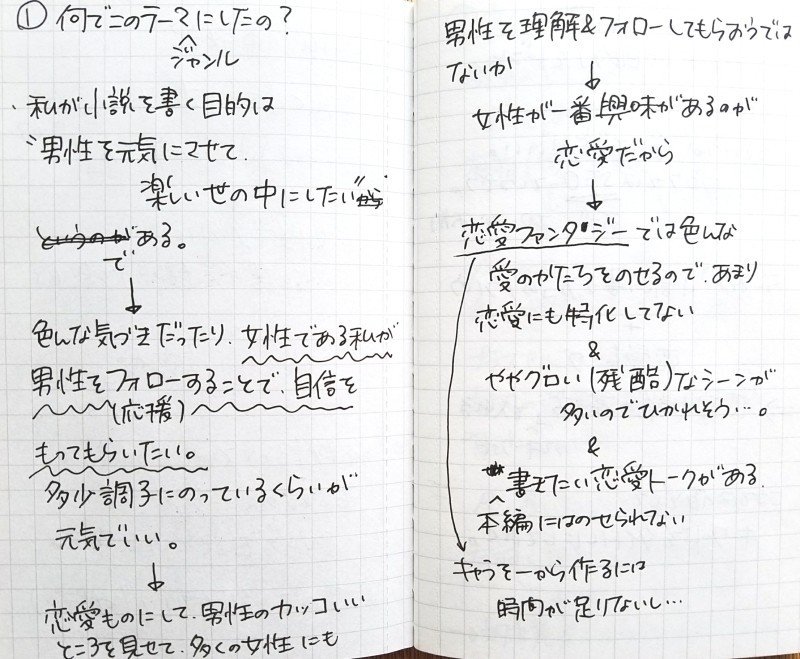 ① 何でこのテーマにしたの?
ジャンル
・私が小説を書く目的は
"男性を元気にさせて、
楽しい世の中にしたい"から
というのがある。
で
↓
色んな気づきだったり、女性である私が
男性をフォローすることで、自信を
(応援)
もってもらいたい。
多少調子にのっているくらいが
元気でいい。
↓
恋愛ものにして、男性のカッコいい
ところを見せて、多くの女性にも
男性を理解&フォローしてもらおうでは
ないか
↓
女性が一番興味があるのが
恋愛だから
↓
恋愛ファンタジーでは色んな
愛のかたちをのせるので、あまり
恋愛にも特化してない
&
ややグロい(残酷)なシーンが
多いのでひかれそう…。
&
書きたい恋愛トークがある。
本編にはのせられない
キャラを一から作るには
時間が足りないし…